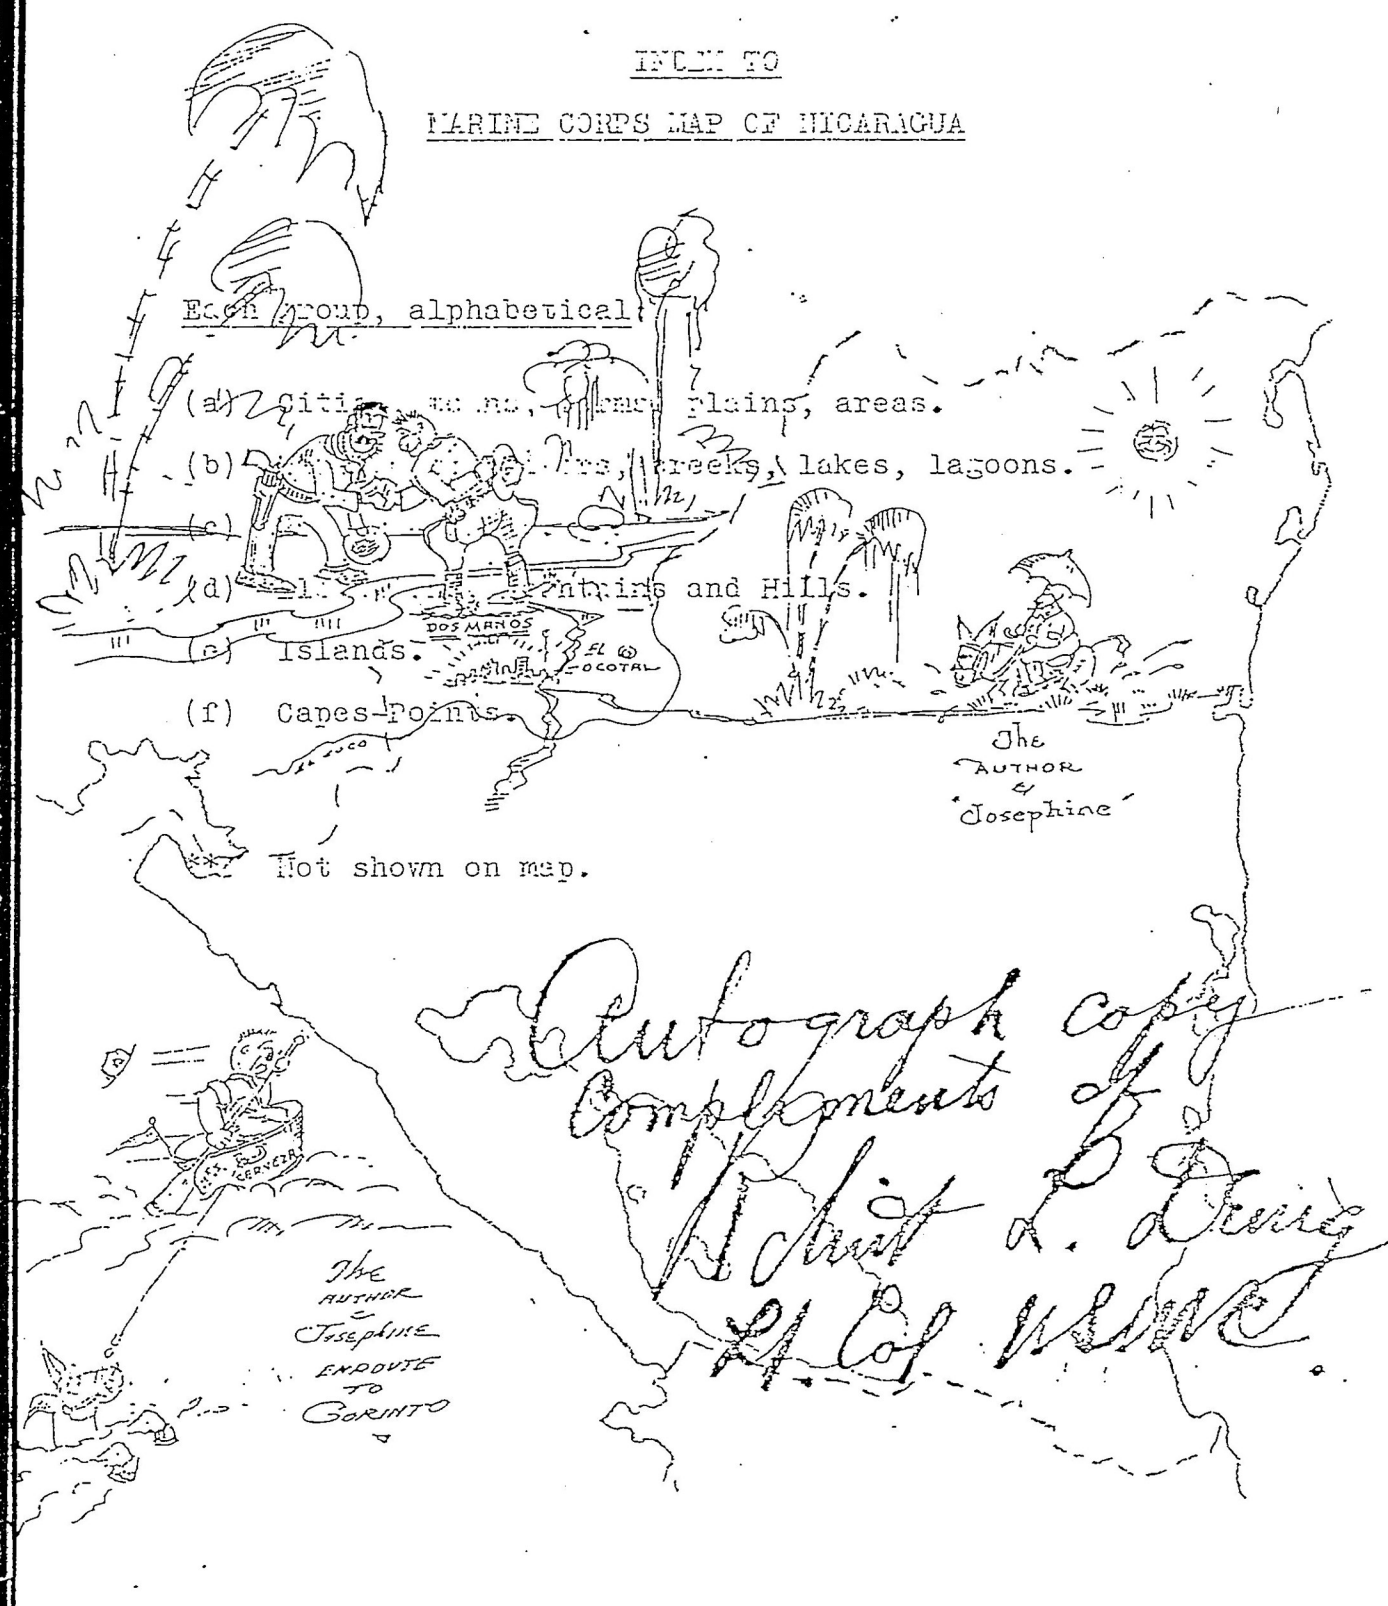 INDEX TO
MARINE CORPS MAP OF NICARAGUA
Each group, alphabetical
(a) Cities, towns, farms, plains, areas.
(b) creeks, lakes, lagoons.
(c)
(d) Mountains and Hills.
(e) Islands.
(f) Capes-Points.
DOS MANOS
EL
OCOTAL
COCO
The
AUTHOR
&
"Josephine"
** Not shown on map.
Autograph copy
Compliments of
Robert L. Denig
Lt. Col USMC.
CERVEZA
The
AUTHOR
&
Josephine
ENROUTE
TO
CORINTO